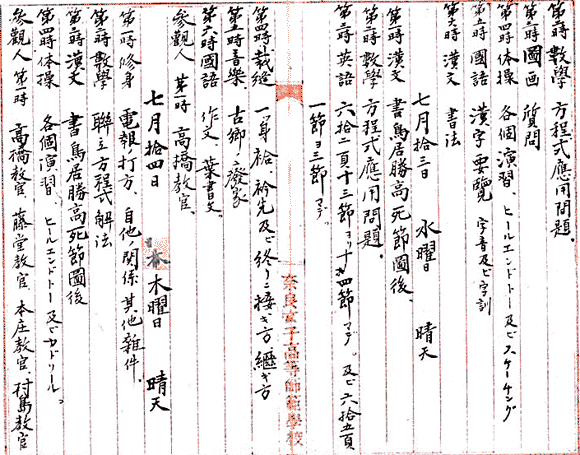 第二時 數學 方程式應用問題。
第三時 圖画 質問
第四時 体操 各個演習、ヒールエンドトー及ビスケーチング
第五時 國語 漢字要覽 字音及ビ字訓
第六時 漢文 書法
七月拾三日 水曜日 晴天
第一時 漢文 書馬居勝高死節圖後、
第二時 數學 方程式應用問題。
第三時 英語 六拾二頁十三節ヨリ十四節マデ。及ビ六拾五頁
一節ヨ三節マデ。
第四時 裁縫 一ツ身袷、衿先及ビ終リニ接ギ方、繼ギ方
第五時 音樂 古鄉ノ廢家
第六時 國語 作文、葉書文、
參觀人 第一時 高橋教官、
七月拾四日 木曜日 晴天
第一時 修身 電報ノ打方、自他ノ関係、其他雜件、
第二時 數學 聯立方程式解法
第三時 漢文 書馬居勝高死節圖後
第四時 体操 各個演習、ヒールエンドトー及ビカドリール。
參觀人 第一時 高橋教官、藤堂教官、本庄教官、村島教官
奈良女子高等師範學校